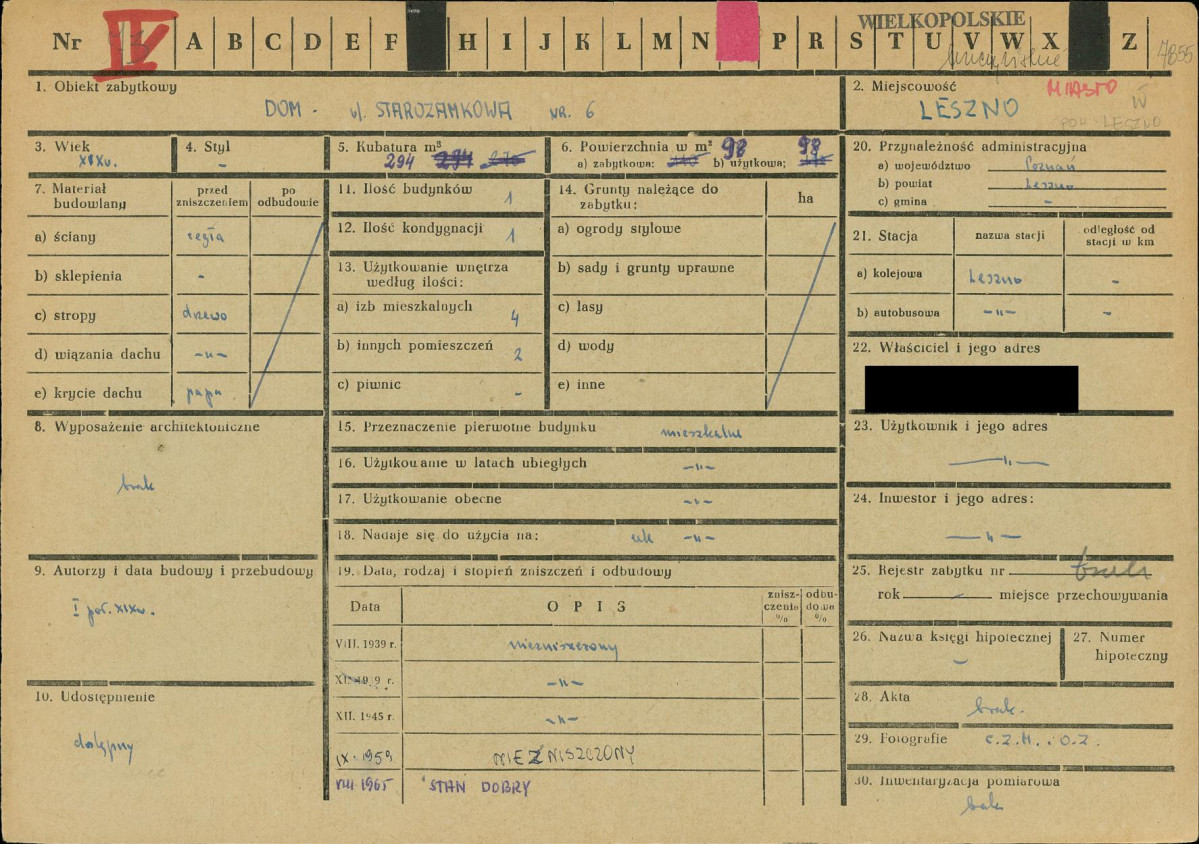 WIELKOPOLSKIE
Nr 13 IV A B C D E F H I J K L M N P R S T U V W X Z 7855
1. Obiekt zabytkowy
DOM - ul. STAROZAMKOWA NR. 6
2. Miejscowość MIASTO
LESZNO
POW. LESZNO
3. Wiek
XIXw.
4. Styl
-
5. Kubatura m³
294 294
6. Powierzchnia w m²
a) zabytkowa: 98 b) użytkowa; 98
7. Materiał budowlany
przed zniszczeniem
po odbudowie
a) ściany cegła
b) sklepienia -
c) stropy drzewo
d) wiązania dachu -"-
e) krycie dachu papa
8. Wyposażenie architektoniczne
brak
9. Autorzy i data budowy i przebudowy
I poł. XIXw.
10. Udostępnienie
dostępny
11. Ilość budynków 1
12. Ilość kondygnacji 1
13. Użytkowanie wnętrza według ilości:
a) izb mieszkalnych 4
b) innych pomieszczeń 2
c) piwnic -
14. Grunty należące do zabytku:
ha
a) ogrody stylowe
b) sady i grunty uprawne
c) lasy
d) wody
e) inne
15. Przeznaczenie pierwotne budynku mieszkalne
16. Użytkowanie w latach ubiegłych -"-
17. Użytkowanie obecne -"-
18. Nadaje się do użycia na: -"-
19. Data, rodzaj i stopień zniszczeń i odbudowy
Data
OPIS
zniszczenia %
odbudowa %
VIII. 1939 r. niezniszczony
XI. 1939 r. -"-
XII. 1945 r. -"-
IX. 1959 NIEZNISZCZONY
VIII 1965 STAN DOBRY
20. Przynależność administracyjna
a) województwo Poznań
b) powiat Leszno
c) gmina -
21. Stacja
nazwa stacji
odległość od stacji w km
a) kolejowa Leszno -
b) autobusowa -"- -
22. Właściciel i jego adres
23. Użytkownik i jego adres
-"-
24. Inwestor i jego adres:
-"-
25. Rejestr zabytku nr brak
rok - miejsce przechowywania
26. Nazwa księgi hipotecznej
-
27. Numer hipoteczny
28. Akta
brak.
29. Fotografie C.Z.M.:O.Z.
30. Inwentaryzacja pomiarowa
brak